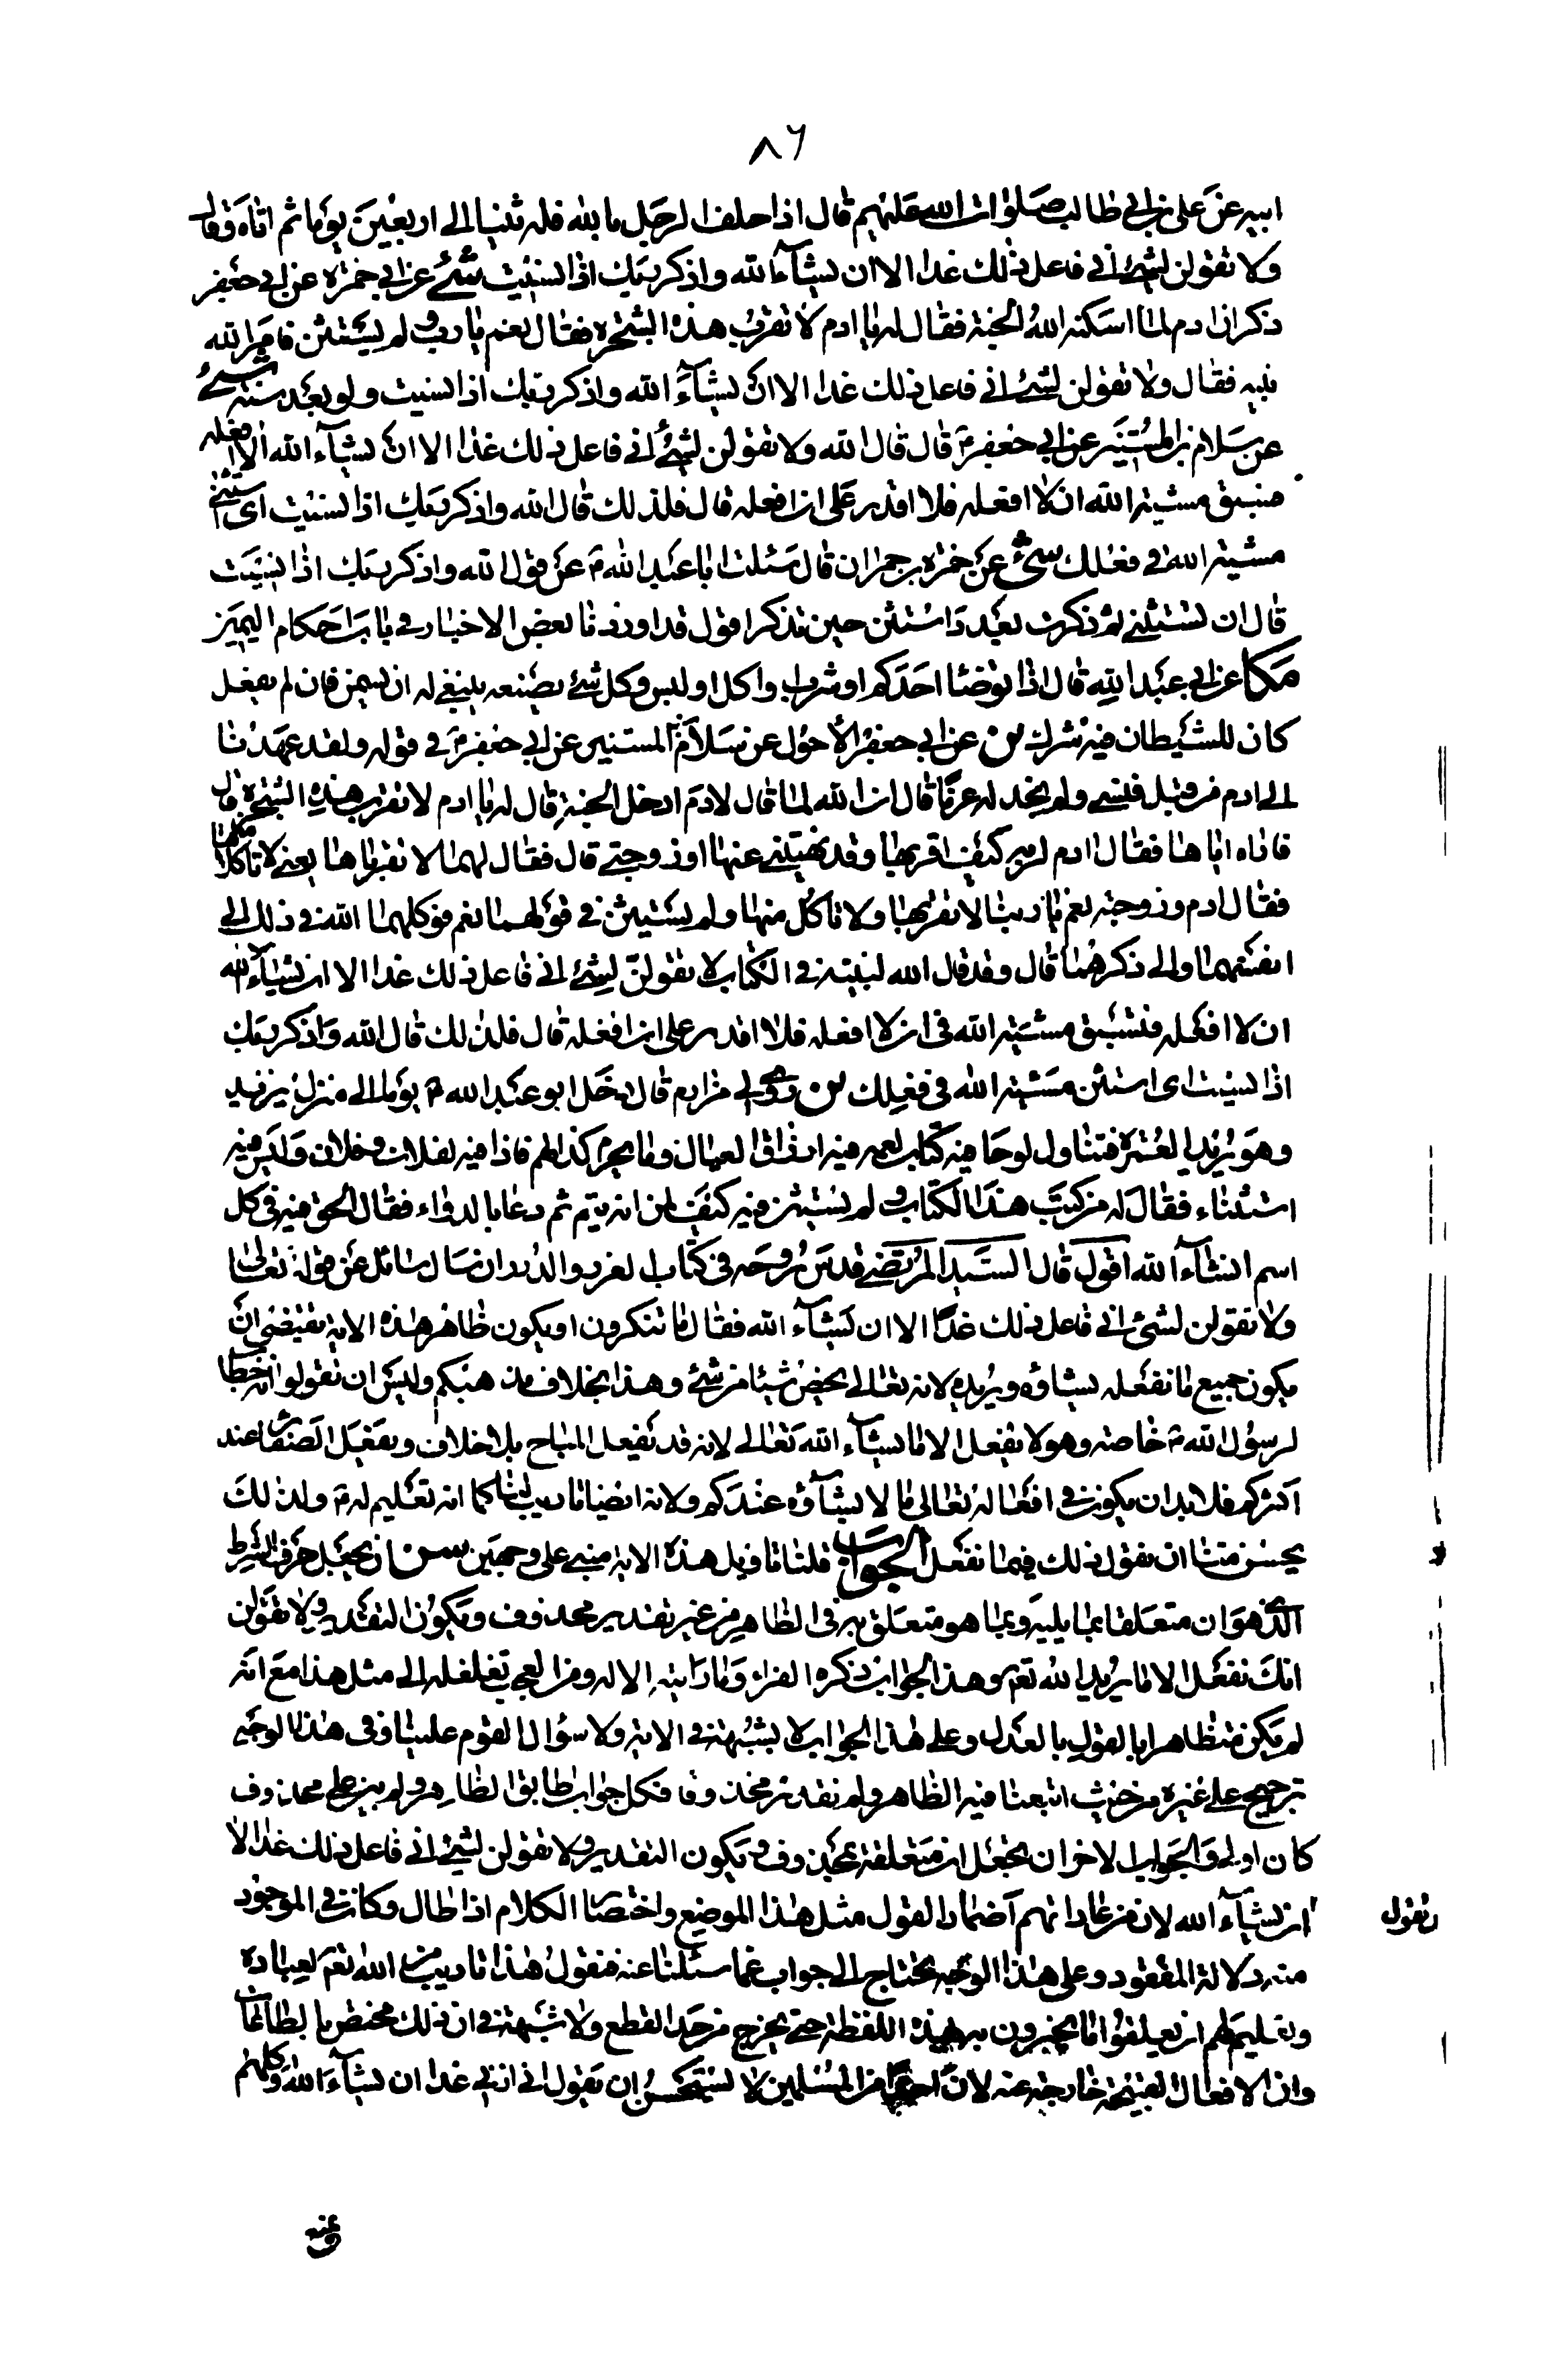 ٨٦
ابيه عن علي بن ابي طالب صلوات الله عليهم قال اذا حلف الرجل بالله فله ثنيا الى اربعين يوما ثم اتاه وقال
ولا تقولن لشئ اني فاعل ذلك غدا الا ان يشآء الله واذكر ربك اذا نسيت شئ عن ابي حمزه عن ابي جعفر
ذكر ان ادم لما اسكنه الله الجنة فقال له يا ادم لا تقرب هذه الشجرة فقال نعم يا رب ولم يستثن فامر الله
نبيه فقال ولا تقولن لشئ اني فاعل ذلك غدا الا ان يشآء الله واذكر ربك اذا نسيت ولو بعد سنة شئ
عن سلام بن المستنير عن ابي جعفر ع قال قال الله ولا تقولن لشئ اني فاعل ذلك غدا الا ان يشآء الله الا افعله
فسبق مشية الله ان لا افعله فلا اقدر على ان افعله قال فلذلك قال الله واذكر ربك اذا نسيت اى استثن
مشية الله في فعلك شئ عن حمزه بن حمران قال سئلت ابا عبد الله ع عن قول الله واذكر ربك اذا نسيت
قال ان تستثني ثم ذكرت بعد فاستثن حين تذكر اقول قد اوردنا بعض الاخبار في باب احكام اليمين
مكا عن ابي عبد الله قال اذا توضا احدكم او شرب واكل او لبس وكل شئ يصنعه ينبغي له ان يسمي فان لم يفعل
كان للشيطان فيه شرك ين عن ابي جعفر الأحول عن سلام بن المستنير عن ابي جعفر ع في قوله ولقد عهدنا
الى ادم من قبل فنسي ولم نجد له عزما قال ان الله لما قال لادم ادخل الجنة قال له يا ادم لا تقرب هذه الشجرة قال
فاراه اياها فقال ادم لربه كيف اقربها وقد نهيتني عنها انا وزوجتي قال فقال لهما لا تقرباها يعني لا تاكلا منها
فقال ادم وزوجته نعم يا ربنا لا نقربها ولا ناكل منها ولم يستثن في قولهما نعم فوكلهما الله في ذلك الى
انفسهما والى ذكرهما قال وقد قال الله لنبيه في الكتاب لا تقولن لشئ اني فاعل ذلك غدا الا ان يشآء الله
ان لا افعله فتسبق مشية الله في ان لا افعله فلا اقدر على ان افعله قال فلذلك قال الله واذكر ربك
اذا نسيت اى استثن مشية الله في فعلك ين روى لي مرازم قال دخل ابو عبد الله ع يوما الى منزل يزيد
وهو يريد العمرة فتناول لوحا فيه كتاب لعمه فيه ارزاق العيال وما يجري لهم فاذا فيه لفلان وفلان وليس فيه
استثناء فقال له من كتب هذا الكتاب ولم يستثن فيه كيف ظن انه يتم ثم دعا بالدواة فقال الحق فيه في كل
اسم انشآء الله اقول قال السيد المرتضى قدس روحه في كتاب الغرر والدرر ان سال سائل عن قوله تعالى
ولا تقولن لشئ اني فاعل ذلك غدا الا ان يشآء الله فقال ما تنكرون ان يكون ظاهر هذه الاية يقتضي ان
يكون جميع ما نفعله يشاؤه ويريده لانه تعالى لم يخص شيئا من شئ وهذا بخلاف مذهبكم وليس ان تقولوا انه خطاب
لرسول الله ص خاصة وهو لا يفعل الا ما يشآء الله تعالى لانه قد يفعل المباح بلا خلاف ويفعل الصغائر عند
اكثركم فلا بد ان يكون في افعاله تعالى ما لا يشآؤه عندكم ولانه ايضا تاديب لنا كما انه تعليم له ص ولذلك
يحسن منا ان نقول ذلك فيما نفعل الجواب قلنا تاويل هذه الاية مبني على وجهين ان يجعل حرف الشرط
الذي هو ان متعلقا بما يليه وبما هو متعلق به في الظاهر من غير تقدير محذوف ويكون التقدير ولا تقولن
انك تفعل الا ما يريد الله تعالى وهذا الجواب ذكره الفراء وما رايته الا له ومن العجب تغلغله الى مثل هذا مع انه
لم يكن متظاهرا بالقول بالعدل وعلى هذا الجواب لا شبهة في الاية ولا سؤال للقوم علينا وفي هذا الوجه
ترجيح على غيره من حيث اتبعنا فيه الظاهر ولم نقدر محذوفا فكل جواب طابق الظاهر ولم يبن على محذوف
كان اولى والجواب الاخر ان نجعل ان متعلقة بمحذوف ويكون التقدير ولا تقولن لشئ اني فاعل ذلك غدا الا
ان يشآء الله لان من عاداتهم اضمار القول مثل هذا الموضع واختصار الكلام اذا طال وكان في الموجود
ان تقول
منه دلالة المفقود وعلى هذا الوجه يحتاج الى جواب عما سئلنا عنه فنقول هذا تاديب من الله تعالى لعباده
وتعليم لهم ان يعلقوا ما يخبرون به بهذه اللفظة حتى يخرج من حد القطع ولا شبهة في ان ذلك مختص بالطاعات
وان الافعال القبيحة خارجة عنه لان احدا من المسلمين لا يستحسن ان يقول اني ازني غدا ان يشآء الله وكلهم